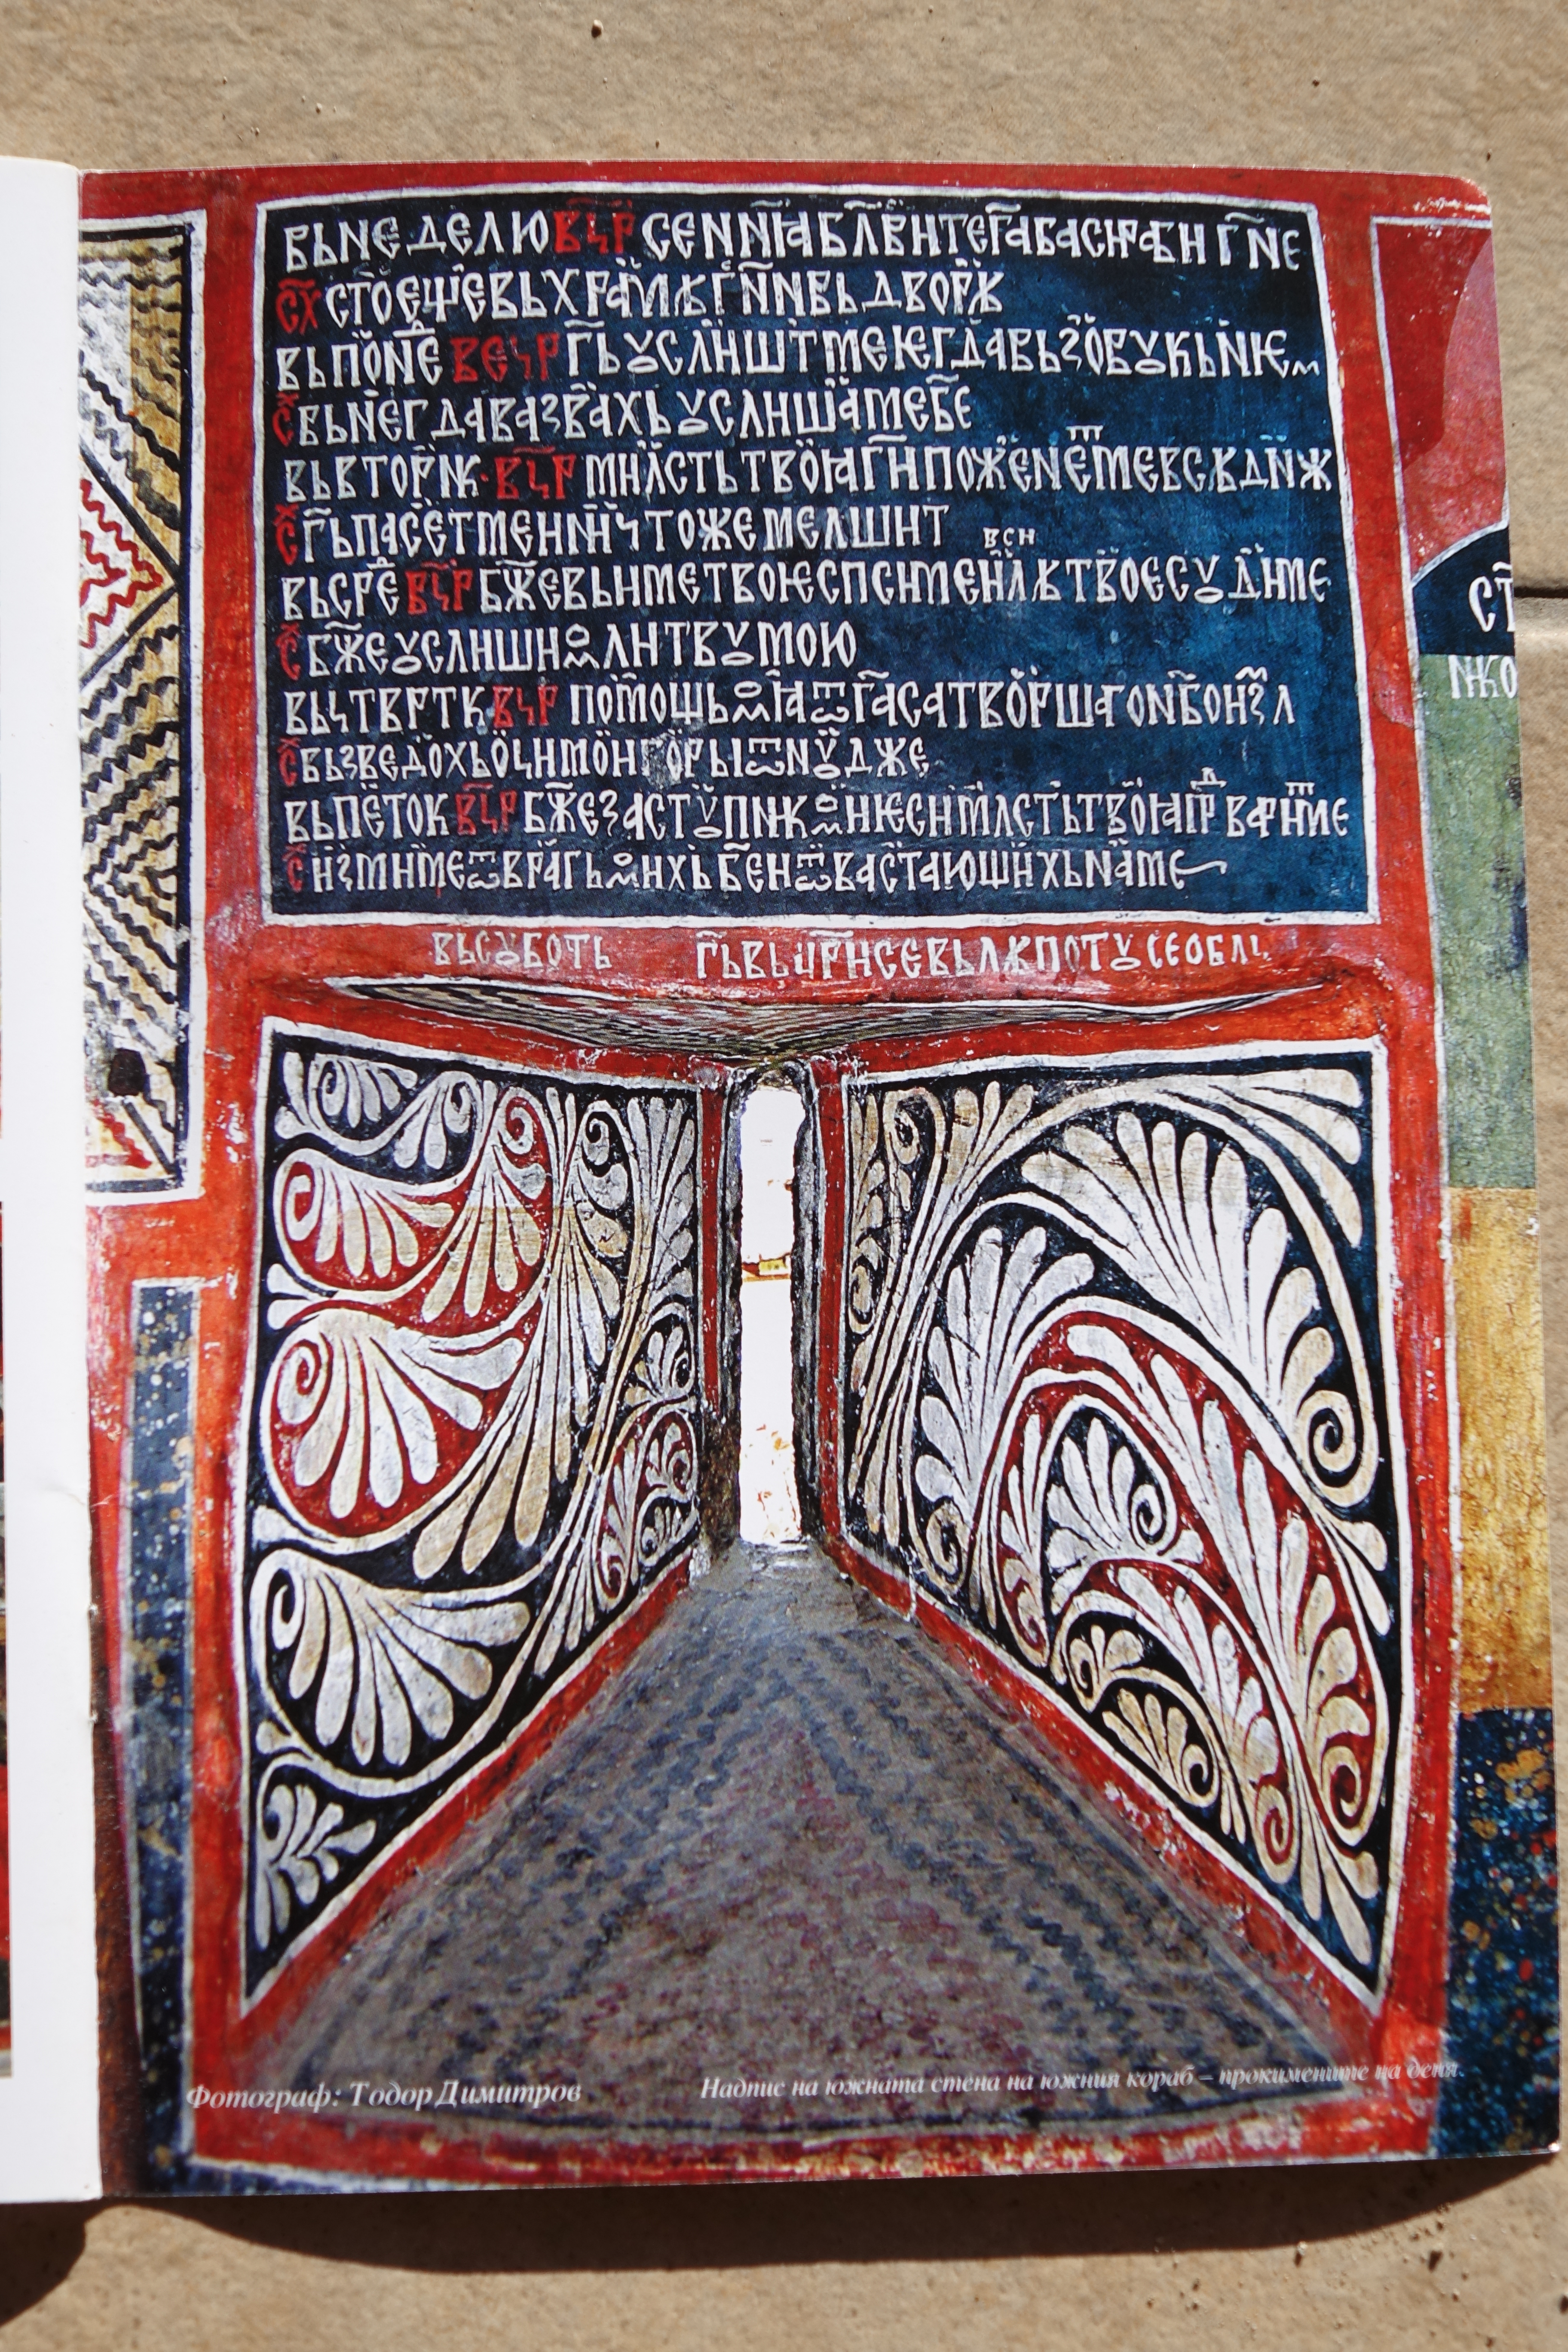 ВЬ NЕДЕЛЮ ВЧР СЕ N҃N҃Ꙗ БЛ҃ВНТЕ Г҃А
С҃Х СТО҃ЕЩЕ ВЬ ХРАМѢ Г҃NN ВЬ ДВОРѢ
ВЬ ПОNЕ ВЕЧР Г҃Ь ꙊСЛНШТ МЕ ЮГДА ВЬЗОВꙊ КЬ NѤМ
С҃Х ВЬNЕГДА ВАЗВАХЬ ꙊСЛНША МЕ Б҃Е
ВЬ ВТОРNК · ВЧР МНЛСТЬ ТВОꙖ Г҃Н ПОЖЕNЕТ МЕ ВСѢ ДN҃Ж
С҃Х Г҃Ь ПАСЕТ МЕ Н NНЧТОЖЕ МЕ ЛШНТ
ВСН
ВЬ СРЕ ВЧР Б҃ЖЕ ВЬ НМЕ ТВОѤ СПСН МЕ Н СꙊДН МЕ
С҃Х Б҃ЖЕ ꙊСЛНШН МОЛНТВꙊ МОЮ
ВЬ ЧТВРТК ВЧР ПОМОЩЬ МОꙖ Ѿ Г҃А САТВОРШАГО NБО Н ЗЛ
С҃Х ВЬЗВЕДОХЬ ОЧН МОН ГОРЫ ѾNꙊДЖЕ
ВЬ ПЕТОК ВЧР Б҃ЖЕ ЗАСТꙊПNК МОН ѤСН МЛСТЬ ТВОꙖ ПР ВАРНТ МЕ
С҃Х НЗМН МЕ Ѿ ВРАГЬ МОНХЬ Б҃Е Н Ѿ ВАСТАЮЩНХЬ NА МЕ
ВЬ СꙊБОТЬ Г҃Ь ВЬЦРН СЕ ВЬ ЛѢПОТꙊ СЕ ОБЛЧ
СТ
NКО
Фотограф: Тодор Димитров
Надпис на южната стена на южния кораб – прокимените на деня.